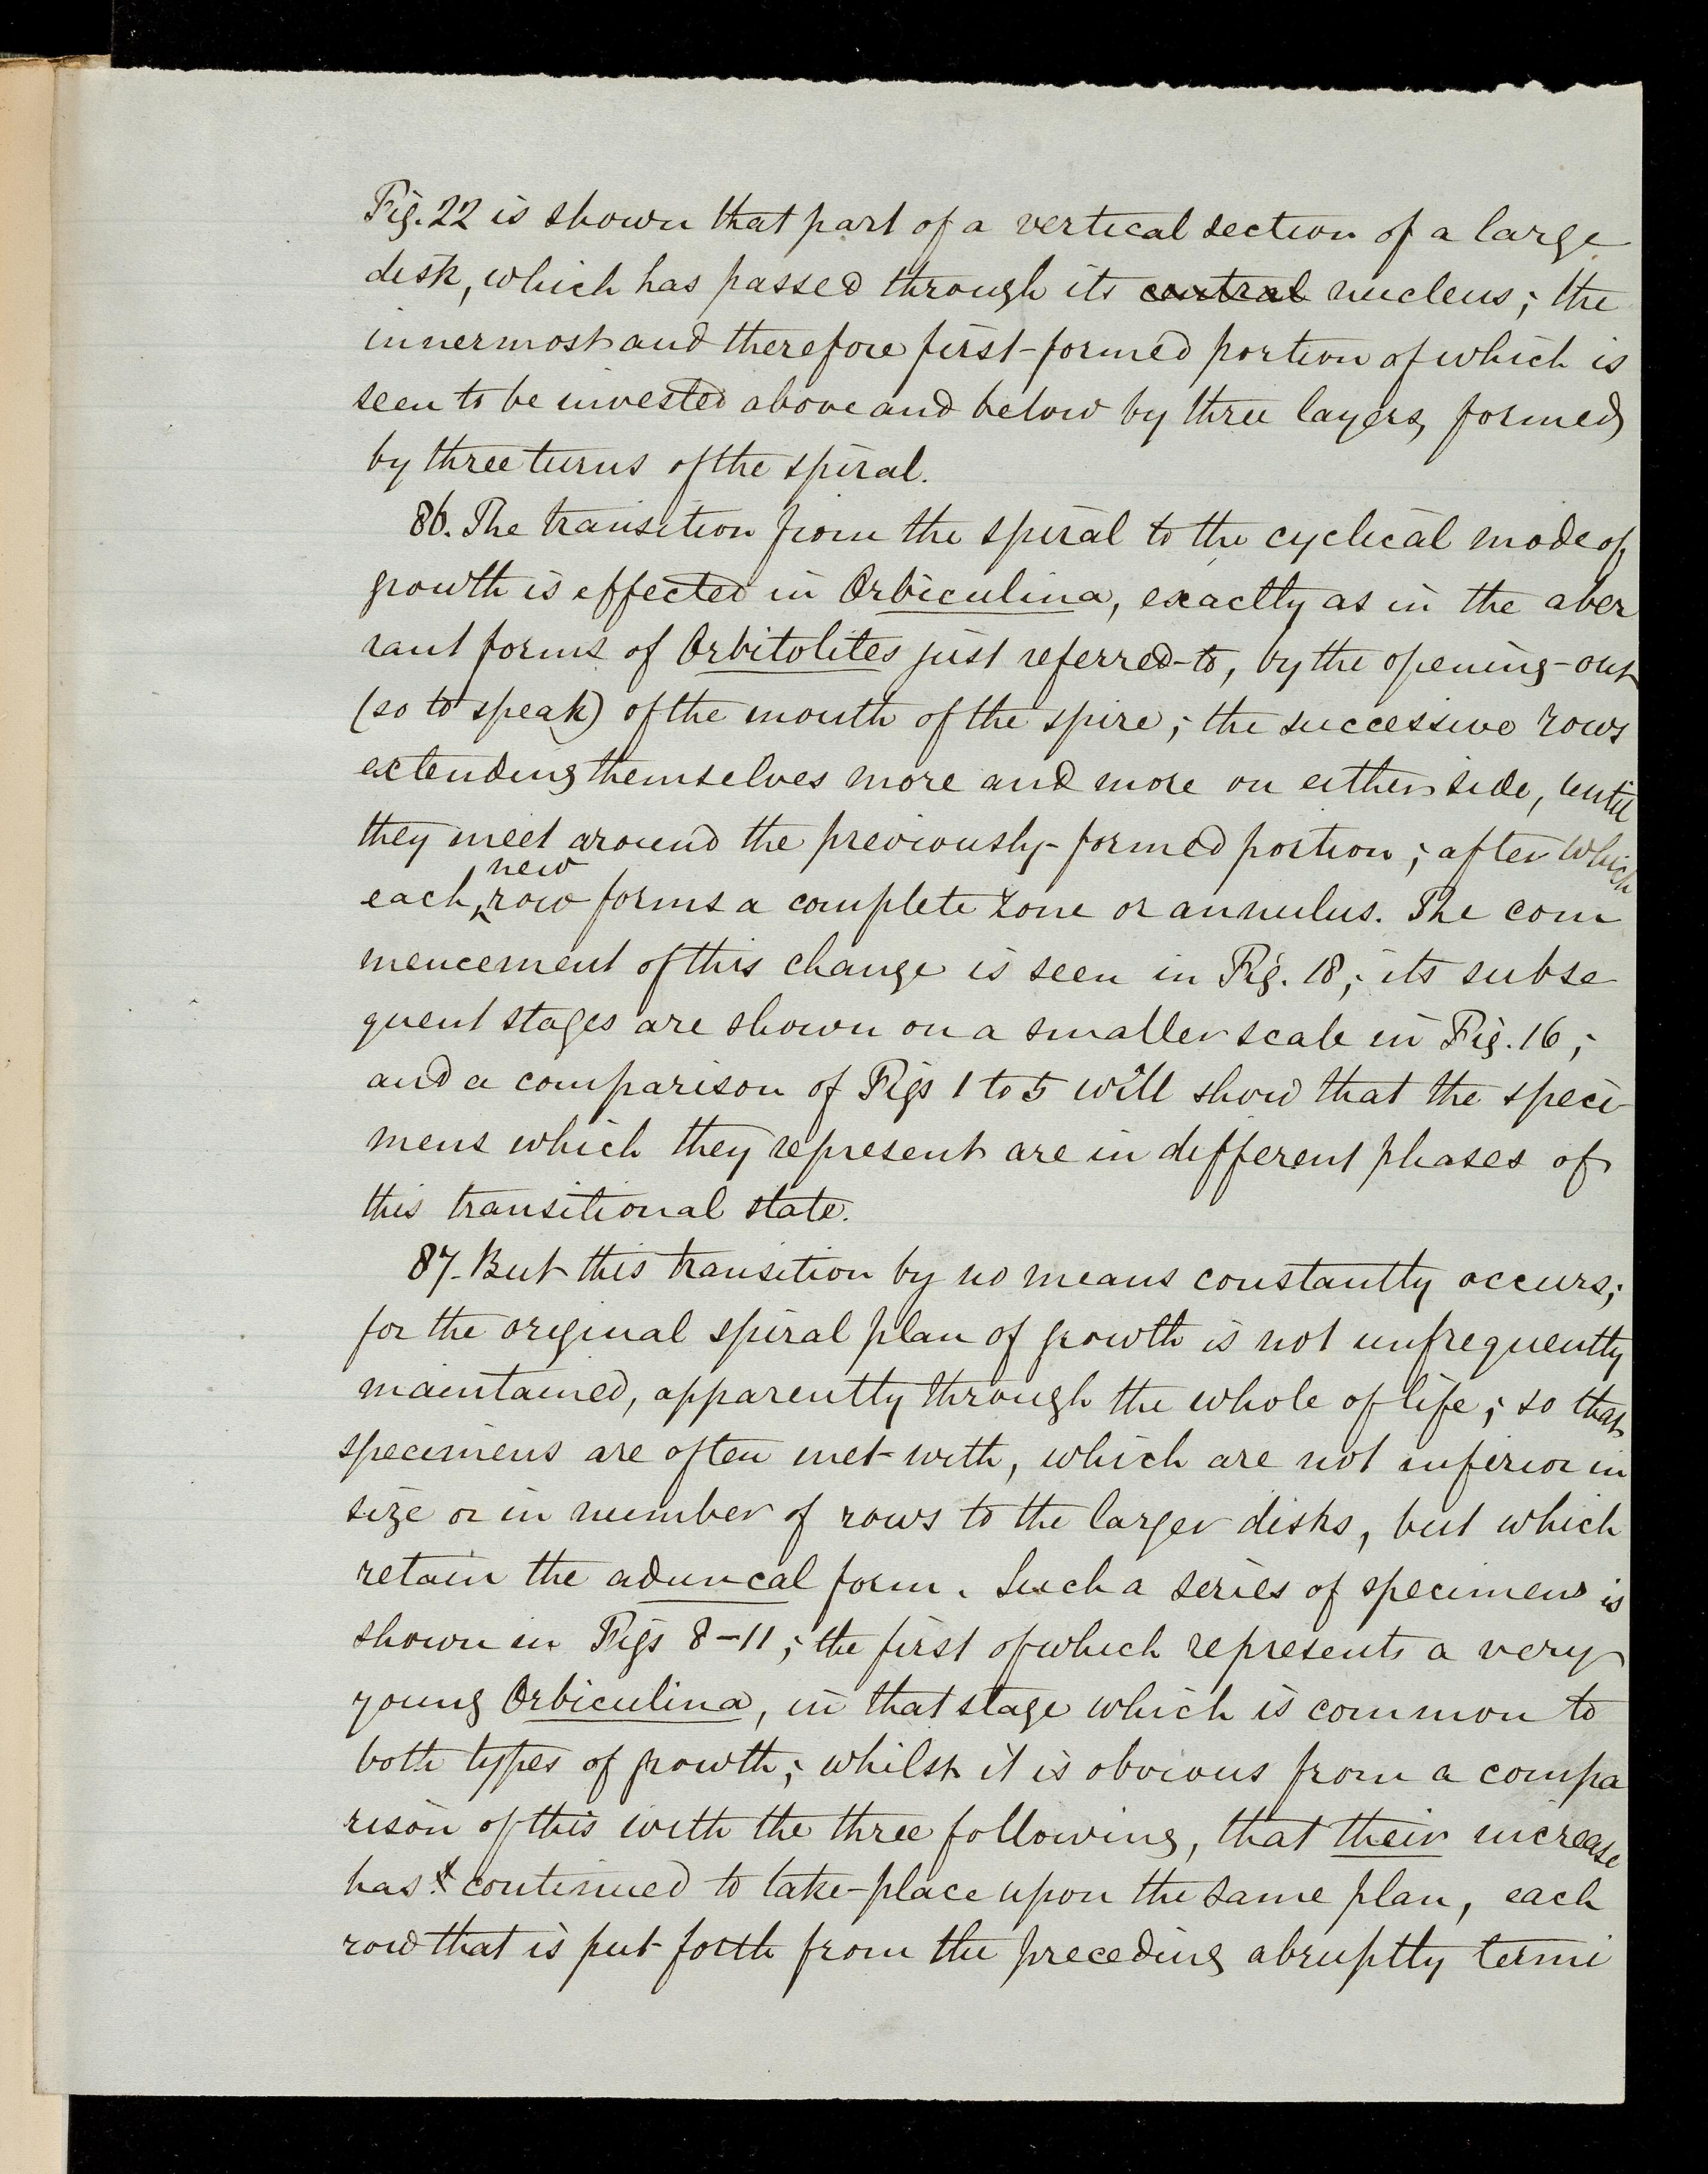 Fig. 22 is shown that part of a vertical section of a large
disk, which has passed through its central nucleus; the
innermost and therefore first-formed portion of which is
seen to be invested above and below by three layers, formed
by three turns of the spiral.
86. The transition from the spiral to the cyclical mode of
growth is effected in Orbiculina, exactly as in the aber
rant forms of Orbitolites just referred-to, by the opening-out
(so to speak) of the mouth of the spire; the successive rows
extending themselves more and more on either side, until
they meet around the previously-formed portion; after which
each new row forms a complete zone or annulus. The com
mencement of this change is seen in Fig. 18; its subse
quent stages are shown on a smaller scale in Fig. 16;
and a comparison of Figs 1 to 5 will show that the speci-
mens which they represent are in different phases of
this transitional state.
87. But this transition by no means constantly occurs;
for the original spiral plan of growth is not unfrequently
maintained, apparently through the whole of life; so that
specimens are often met-with, which are not inferior in
size or in number of rows to the larger disks, but which
retain the aduncal form. Such a series of specimens is
shown in Figs 8-11; the first of which represents a very
young Orbiculina, in that stage which is common to
both types of growth; whilst it is obvious from a compa
rison of this with the three following, that their increase
has continued to take-place upon the same plan, each
row that is put forth from the preceding abruptly termi